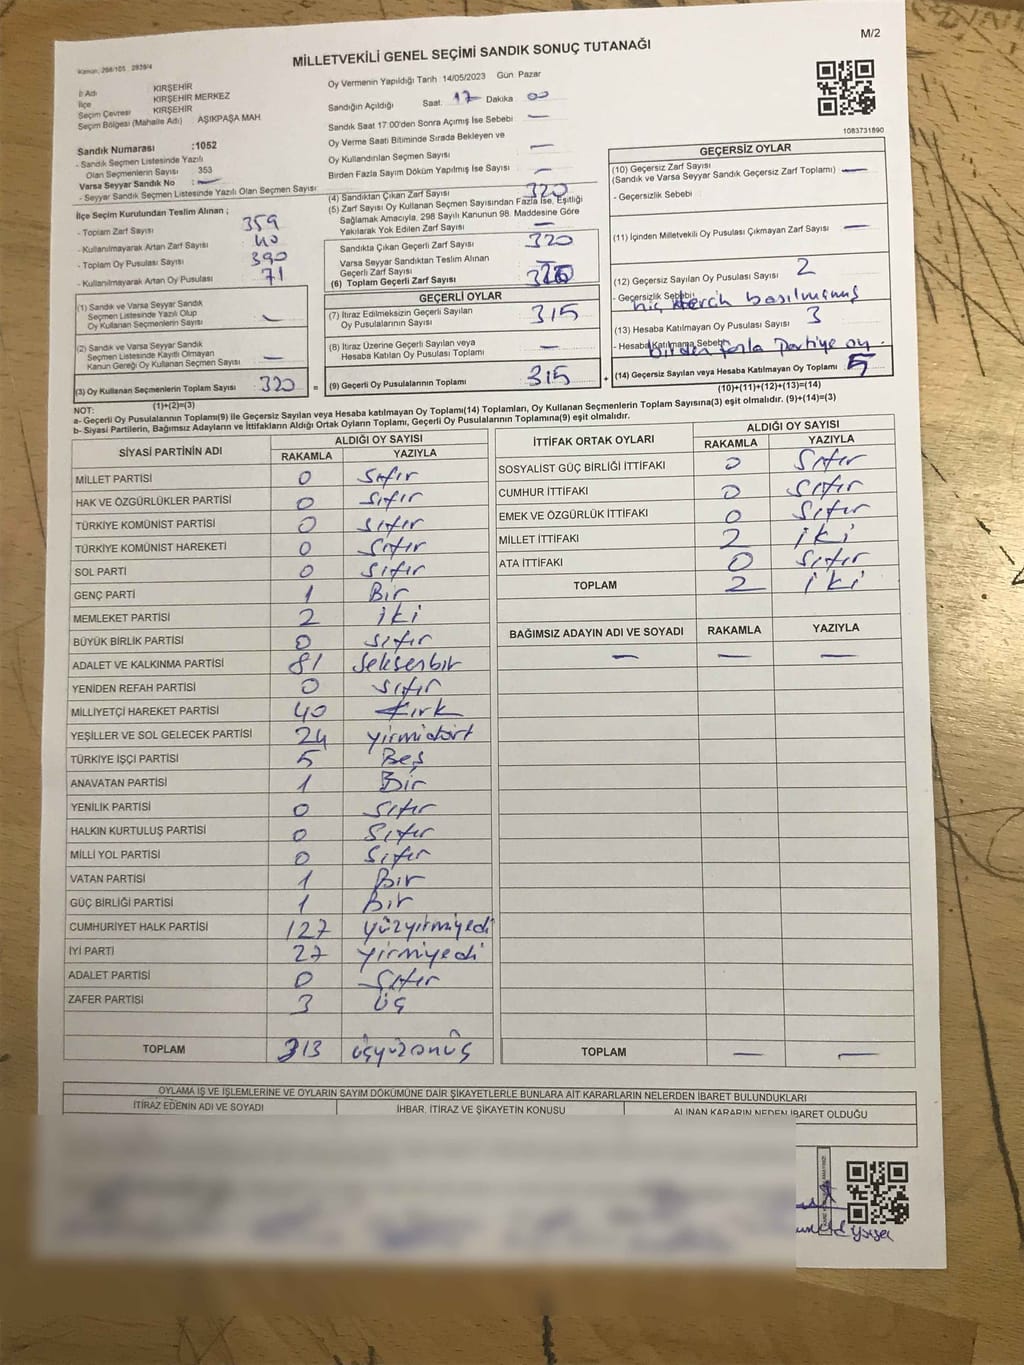 M/2
MİLLETVEKİLİ GENEL SEÇİMİ SANDIK SONUÇ TUTANAĞI
Kanun: 298/105 2839/4
İl Adı KIRŞEHİR
İlçe KIRŞEHİR MERKEZ
Seçim Çevresi KIRŞEHİR
Seçim Bölgesi (Mahalle Adı) AŞIKPAŞA MAH
Sandık Numarası :1052
- Sandık Seçmen Listesinde Yazılı
Olan Seçmenlerin Sayısı 353
Varsa Seyyar Sandık No : —
- Seyyar Sandık Seçmen Listesinde Yazılı Olan Seçmen Sayısı:
İlçe Seçim Kurulundan Teslim Alınan ;
- Toplam Zarf Sayısı 359
- Kullanılmayarak Artan Zarf Sayısı 40
- Toplam Oy Pusulası Sayısı 390
- Kullanılmayarak Artan Oy Pusulası 71
(1) Sandık ve Varsa Seyyar Sandık
Seçmen Listesinde Yazılı Olup
Oy Kullanan Seçmenlerin Sayısı —
(2) Sandık ve Varsa Seyyar Sandık
Seçmen Listesinde Kayıtlı Olmayan
Kanun Gereği Oy Kullanan Seçmen Sayısı —
(3) Oy Kullanan Seçmenlerin Toplam Sayısı 320
(1)+(2)=(3)
Oy Vermenin Yapıldığı Tarih 14/05/2023 Gün: Pazar
Sandığın Açıldığı Saat: 17 Dakika 00
Sandık Saat 17:00'den Sonra Açımış İse Sebebi —
Oy Verme Saati Bitiminde Sırada Bekleyen ve
Oy Kullandırılan Seçmen Sayısı —
Birden Fazla Sayım Döküm Yapılmış İse Sayısı —
(4) Sandıktan Çıkan Zarf Sayısı 320
(5) Zarf Sayısı Oy Kullanan Seçmen Sayısından Fazla İse, Eşitliği
Sağlamak Amacıyla, 298 Sayılı Kanunun 98. Maddesine Göre
Yakılarak Yok Edilen Zarf Sayısı —
Sandıkta Çıkan Geçerli Zarf Sayısı 320
Varsa Seyyar Sandıktan Teslim Alınan
Geçerli Zarf Sayısı —
(6) Toplam Geçerli Zarf Sayısı 320
=
GEÇERLİ OYLAR
(7) İtiraz Edilmeksizin Geçerli Sayılan
Oy Pusulalarının Sayısı 315
(8) İtiraz Üzerine Geçerli Sayılan veya
Hesaba Katılan Oy Pusulası Toplamı —
(9) Geçerli Oy Pusulalarının Toplamı 315
+
1083731890
GEÇERSİZ OYLAR
(10) Geçersiz Zarf Sayısı
(Sandık ve Varsa Seyyar Sandık Geçersiz Zarf Toplamı) —
- Geçersizlik Sebebi
(11) İçinden Milletvekili Oy Pusulası Çıkmayan Zarf Sayısı —
(12) Geçersiz Sayılan Oy Pusulası Sayısı 2
- Geçersizlik Sebebi: hiç tercih basılmamış
(13) Hesaba Katılmayan Oy Pusulası Sayısı 3
- Hesaba Katılmama Sebebi: birden fazla Partiye oy
(14) Geçersiz Sayılan veya Hesaba Katılmayan Oy Toplamı 5
(10)+(11)+(12)+(13)=(14)
NOT:
a- Geçerli Oy Pusulalarının Toplamı(9) ile Geçersiz Sayılan veya Hesaba katılmayan Oy Toplamı(14) Toplamları, Oy Kullanan Seçmenlerin Toplam Sayısına(3) eşit olmalıdır. (9)+(14)=(3)
b- Siyasi Partilerin, Bağımsız Adayların ve İttifakların Aldığı Ortak Oyların Toplamı, Geçerli Oy Pusulalarının Toplamına(9) eşit olmalıdır.
SİYASİ PARTİNİN ADI ALDIĞI OY SAYISI
RAKAMLA YAZIYLA
MİLLET PARTİSİ 0 Sıfır
HAK VE ÖZGÜRLÜKLER PARTİSİ 0 Sıfır
TÜRKİYE KOMÜNİST PARTİSİ 0 Sıfır
TÜRKİYE KOMÜNİST HAREKETİ 0 Sıfır
SOL PARTİ 0 Sıfır
GENÇ PARTİ 1 Bir
MEMLEKET PARTİSİ 2 iki
BÜYÜK BİRLİK PARTİSİ 0 Sıfır
ADALET VE KALKINMA PARTİSİ 81 Seksenbir
YENİDEN REFAH PARTİSİ 0 Sıfır
MİLLİYETÇİ HAREKET PARTİSİ 40 Kırk
YEŞİLLER VE SOL GELECEK PARTİSİ 24 yirmidört
TÜRKİYE İŞÇİ PARTİSİ 5 Beş
ANAVATAN PARTİSİ 1 Bir
YENİLİK PARTİSİ 0 Sıfır
HALKIN KURTULUŞ PARTİSİ 0 Sıfır
MİLLİ YOL PARTİSİ 0 Sıfır
VATAN PARTİSİ 1 Bir
GÜÇ BİRLİĞİ PARTİSİ 1 Bir
CUMHURİYET HALK PARTİSİ 127 yüzyirmiyedi
İYİ PARTİ 27 yirmiyedi
ADALET PARTİSİ 0 Sıfır
ZAFER PARTİSİ 3 üç
TOPLAM 313 üçyüzonüç
İTTİFAK ORTAK OYLARI ALDIĞI OY SAYISI
RAKAMLA YAZIYLA
SOSYALİST GÜÇ BİRLİĞİ İTTİFAKI 0 Sıfır
CUMHUR İTTİFAKI 0 Sıfır
EMEK VE ÖZGÜRLÜK İTTİFAKI 0 Sıfır
MİLLET İTTİFAKI 2 iki
ATA İTTİFAKI 0 Sıfır
TOPLAM 2 iki
BAĞIMSIZ ADAYIN ADI VE SOYADI RAKAMLA YAZIYLA
— — —
TOPLAM — —
OYLAMA İŞ VE İŞLEMLERİNE VE OYLARIN SAYIM DÖKÜMÜNE DAİR ŞİKAYETLERLE BUNLARA AİT KARARLARIN NELERDEN İBARET BULUNDUKLARI
İTİRAZ EDENİN ADI VE SOYADI İHBAR, İTİRAZ VE ŞİKAYETİN KONUSU ALINAN KARARIN NEDEN İBARET OLDUĞU